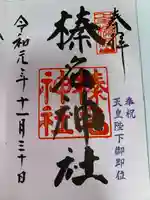 奉拝
奉祝
天皇陛下御即位
榛名神社
令和元年十一月三十日